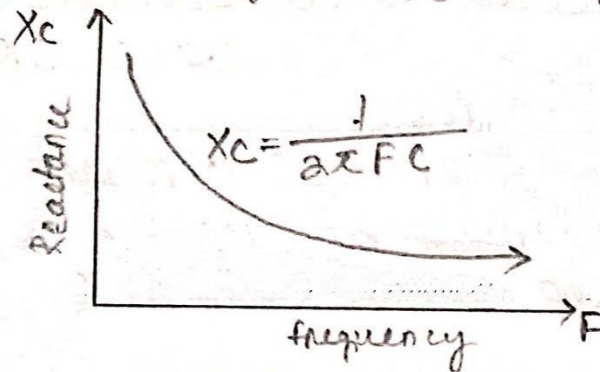 Xc
Reactance
Xc = 1 / 2πFC
F
frequency